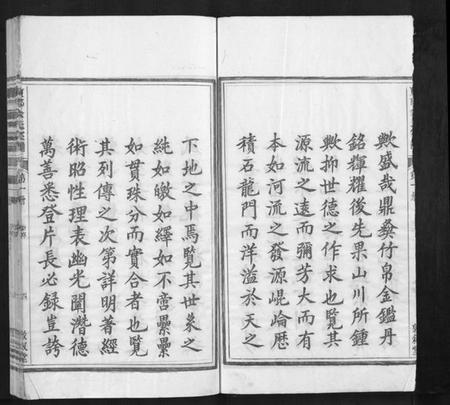 歟盛哉鼎彝竹帛金鑑丹
銘輝耀後先果山川所鍾
歟抑世德之作求也覽其
源流之遠而彌芳大而有
本如河流之發源崐崘歷
積石龍門而洋溢於天之
下地之中焉覽其世系之
純如皦如繹如不啻纍纍
如貫珠分而實合者也覽
其列傳之次第詳明著經
術昭性理表幽光闡潛德
萬善悉登片長必録豈誇